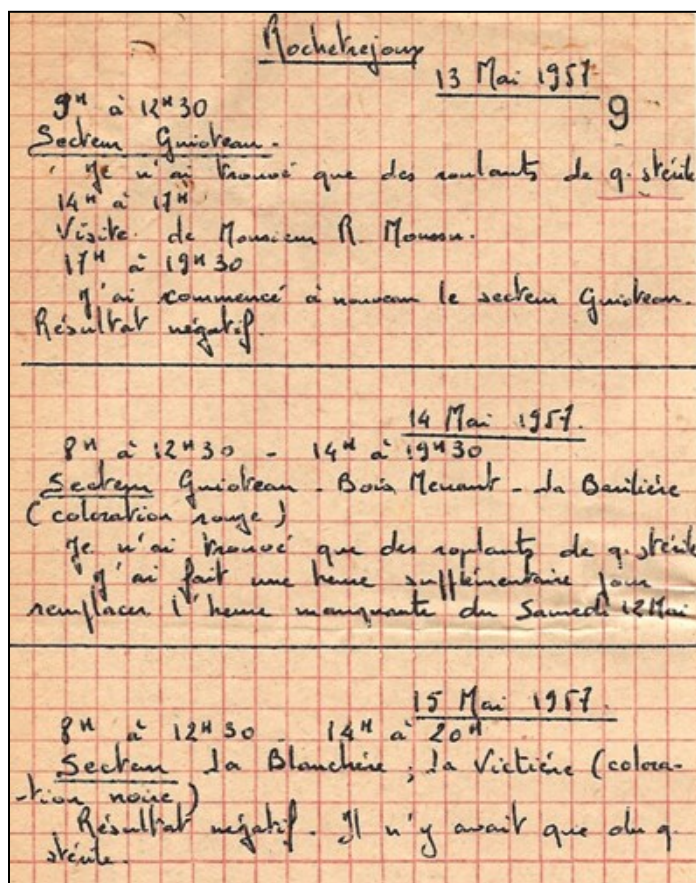 Rochetrejoux
13 Mai 1957
9
9H à 12H30
Secteur Guioteau.
Je n'ai trouvé que des roulants de q. stérile
14H à 17H
Visite de Monsieur R. Moussu.
17H à 19H30
J'ai commencé à nouveau le secteur Guioteau.
Résultat négatif.
14 Mai 1957.
8H à 12H30 - 14H à 19H30
Secteur Guioteau - Bois Menant - La
(coloration rouge)
Je n'ai trouvé que des roulants de q. stérile
J'ai fait une heure supplémentaire pour
remplacer l'heure manquante du Samedi 12 Mai
15 Mai 1957.
8H à 12H30 - 14H à 20H
Secteur La Blanchère ; La (colora-
-tion noire)
Résultat négatif. Il n'y avait que du q.
stérile.